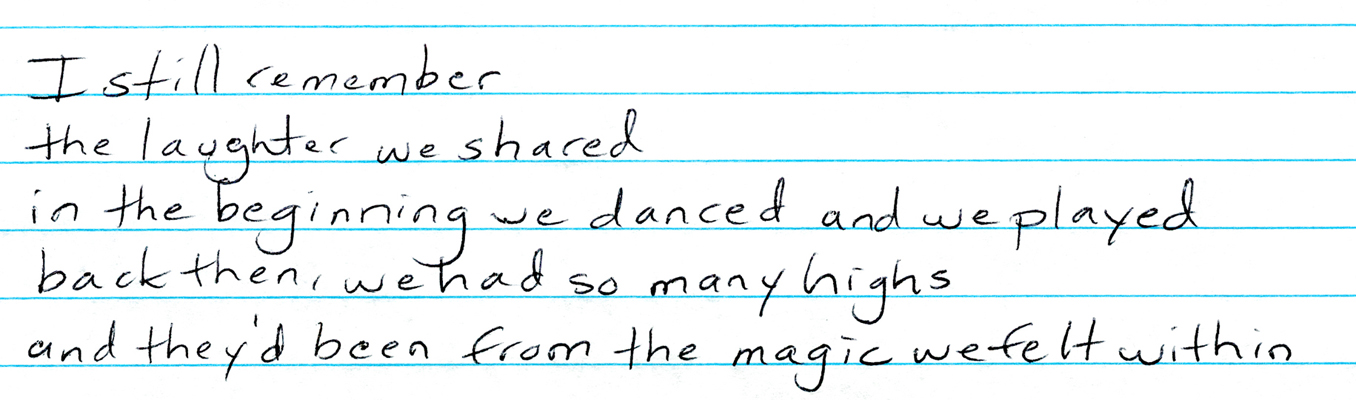 I still remember
the laughter we shared
in the beginning we danced and we played
back then, we had so many highs
and they'd been from the magic we felt within